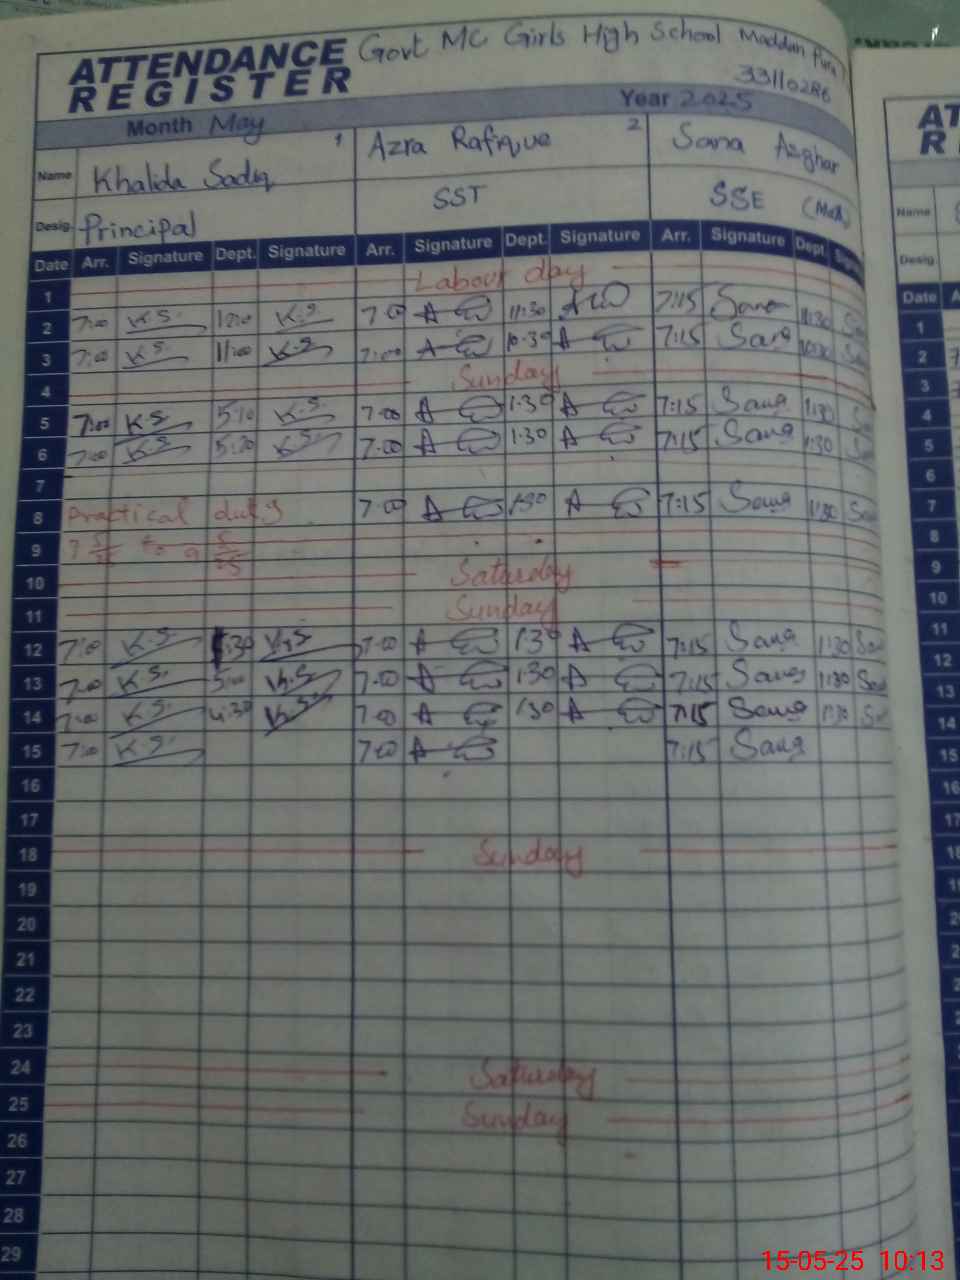 ATTENDANCE REGISTER Govt MC Girls High School Maddan Pura
33110286
Month May Year 2025
Name Khalida Sadiq 1 Azra Rafique 2 Sana Azghar
Desig. Principal SST SSE (Math)
Date Arr. Signature Dept. Signature Arr. Signature Dept. Signature Arr. Signature Dept.
1 Labour day
2 7:00 K.S. K.S. 7:00 11:30 7:15 Sana 11:30
3 7:00 K.S. 11:00 K.S. 7:00 10:30 7:15 Sana
4 Sunday
5 7:00 K.S. 5:10 K.S. 7:00 1:30 7:15 Sana 1:30
6 7:00 K.S. 5:20 K.S. 7:00 1:30 7:15 Sana 1:30
7
8 Practical duty 7:00 1:30 7:15 Sana 1:30
9 to
10 Saturday
11 Sunday
12 7:00 K.S. 1:30 K.S 7:00 1:30 7:15 Sana 1:30
13 7:00 K.S. 5:00 K.S 7:00 1:30 7:15 Sana 1:30
14 7:00 K.S. 4:30 K.S 7:00 1:30 7:15 Sana 1:30
15 7:00 K.S. 7:00 7:15 Sana
16
17
18 Sunday
19
20
21
22
23
24 Saturday
25 Sunday
26
27
28
29
Name
Desig.
Date
1
2
3
4
5
6
7
8
9
10
11
12
13
14
15
16
17
18
15-05-25 10:13